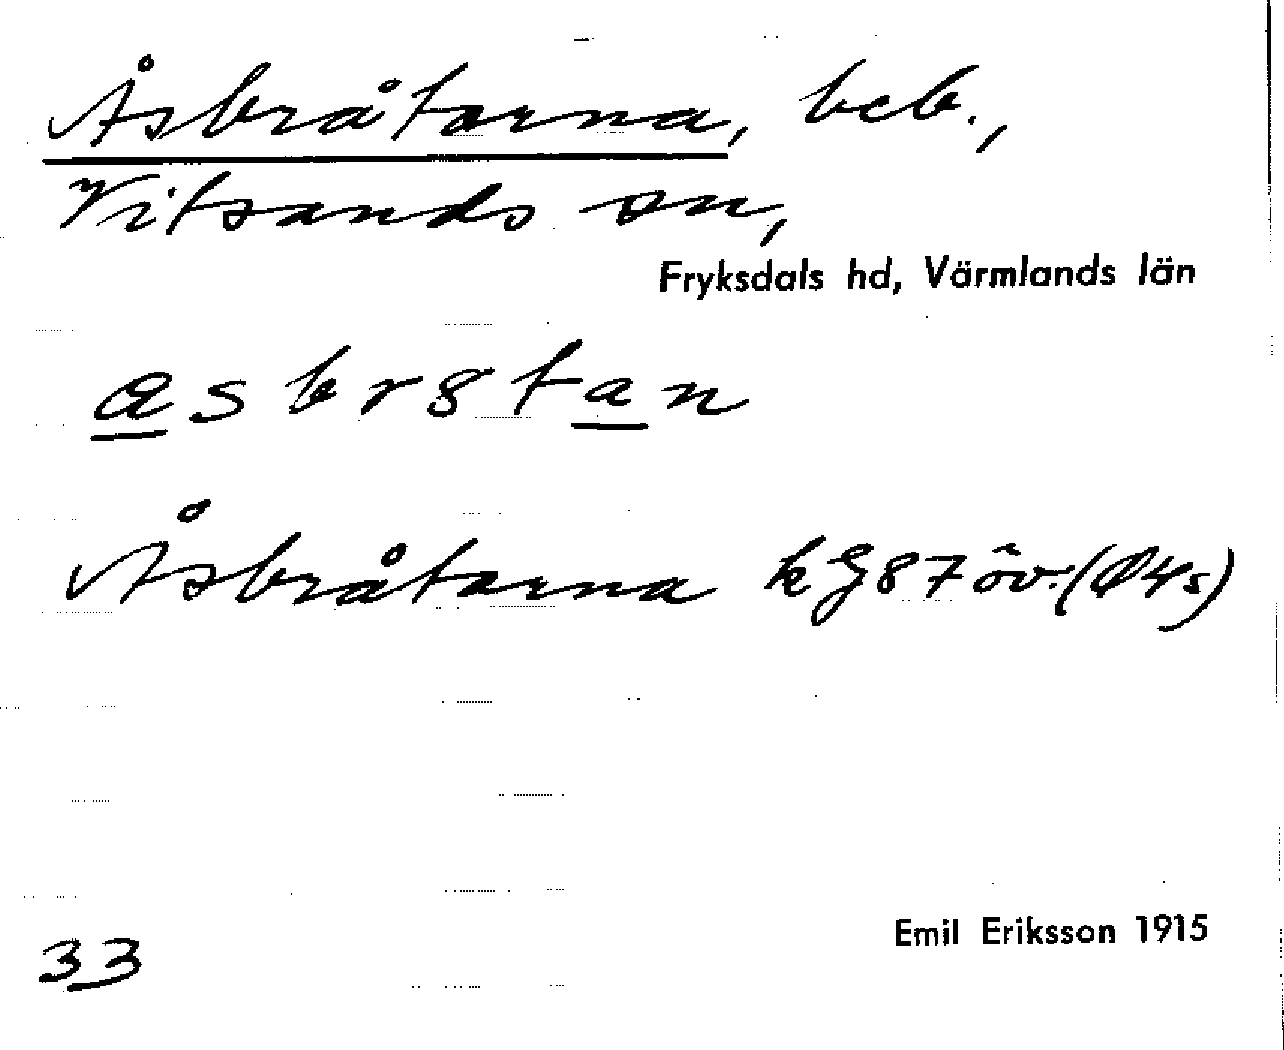 Åsbråtarna, beb.,
Vitsands sn,
Fryksdals hd, Värmlands län
a s b r 8 t a n
Åsbråtarna k G 87 öv. (Ø4s)
33
Emil Eriksson 1915